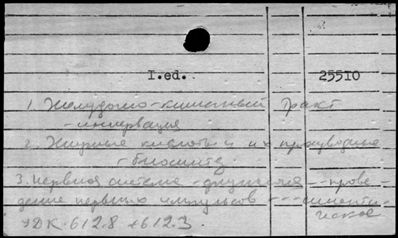 I.ed. 25510
1. Желудочно-кишечный тракт
- иннервация
2. Жирные кислоты и их производные
- биосинтез
3. Нервная система - функция - - прове
дение нервных импульсов - - -
УДК 612.8 + 612.3.